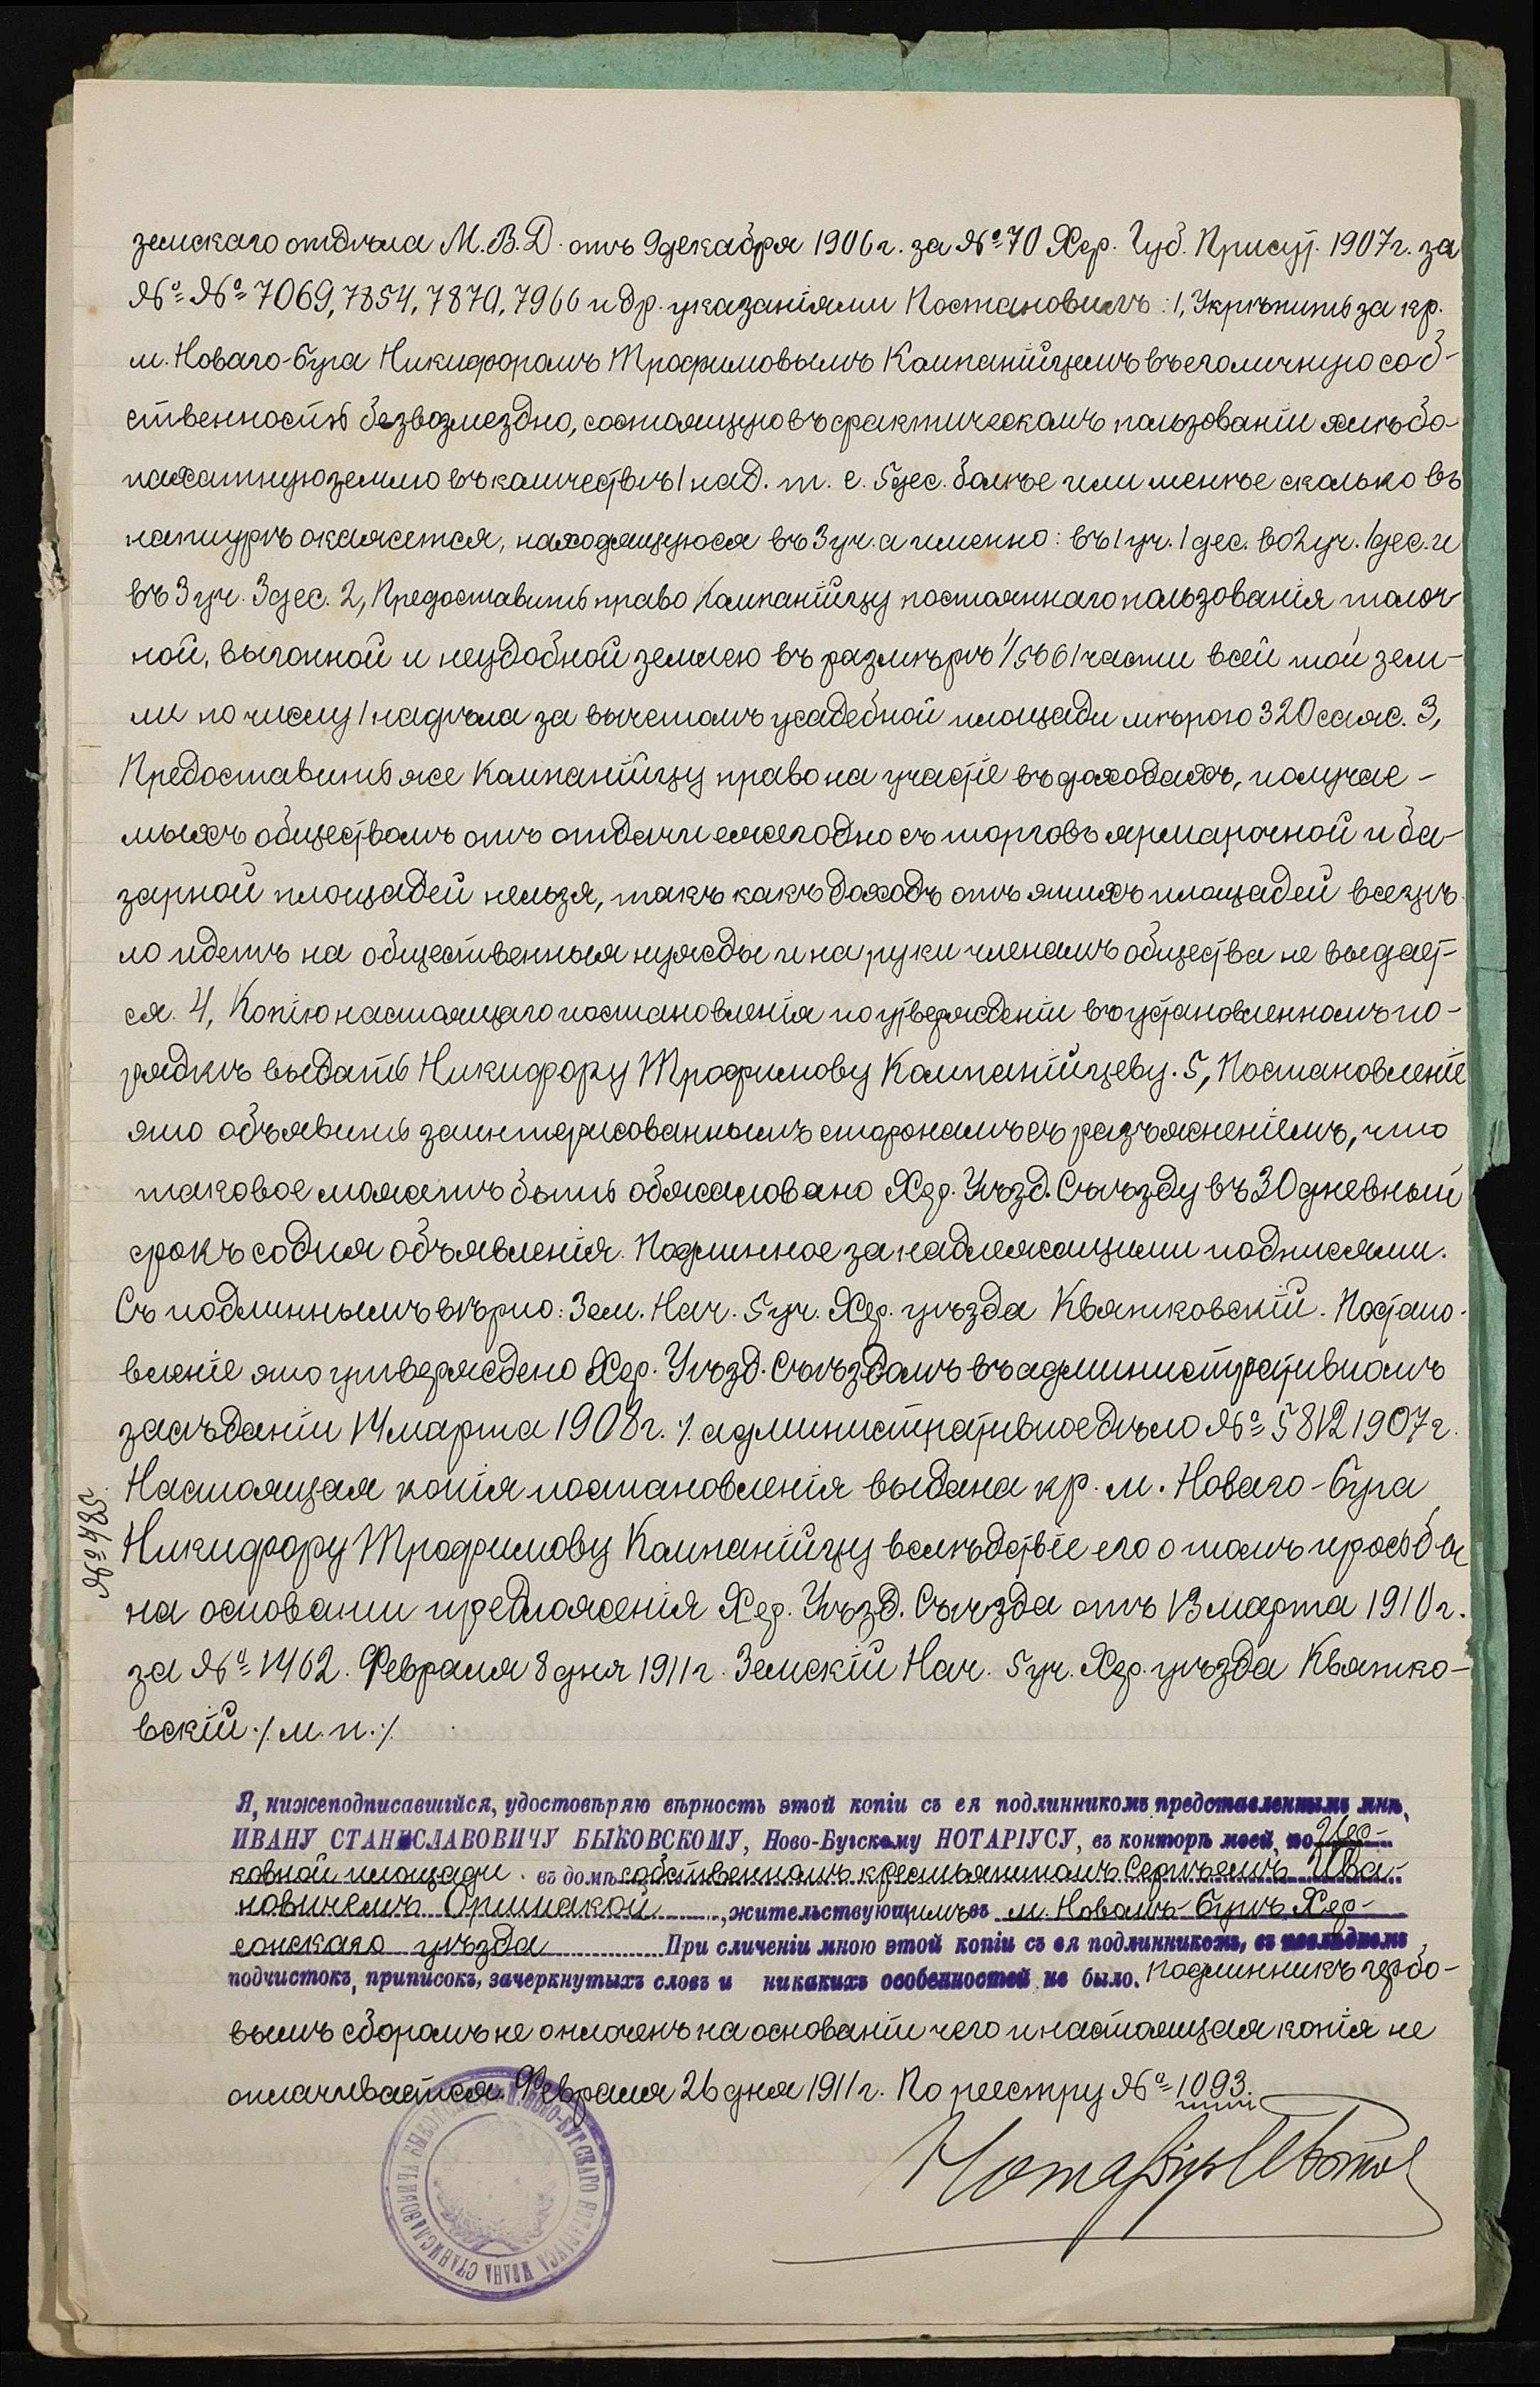 земскаго отдѣла М.В.Д. отъ 9 декабря 1906 г. за №70 Хер. Губ. Присут. 1907 г. за
№ № 7069, 7854, 7870, 7966 и др. указаніями Постановилъ: 1, Укрѣпить за кр.
м. Новаго-Буга Никифоромъ Трофимовымъ Компанійцемъ въ его личную соб-
ственность безвозмездно, состоящую въ фактическомъ пользованіи хлѣбо-
пахатную землю въ количествѣ 1 над. т. е. 5 дес. болѣе или менѣе сколько въ
натурѣ окажется, находящуюся въ 3 уч. а именно: въ 1 уч. 1 дес. во 2 уч. 1 дес. и
въ 3 уч. 3 дес. 2, Предоставить право Компанійцу постояннаго пользованія толоч-
ной, выгонной и неудобной землею въ размѣрѣ 1/5661 части всей той зем-
ли по числу 1 надѣла за вычетомъ усадебной площади мѣрою 320 саж. 3,
Предоставить же Компанійцу право на участіе въ доходахъ, получае-
мыхъ обществомъ отъ отдачи ежегодно съ торговъ ярмарочной и ба-
зарной площадей нельзя, такъ какъ доходъ отъ этихъ площадей всецѣ-
ло идетъ на общественныя нужды и на руки членамъ общества не выдает-
ся. 4, Копію настоящаго постановленія по утвержденіи въ установленномъ по-
рядкѣ выдать Никифору Трофимову Компанійцеву. 5, Постановленіе
это объявить заинтерисованнымъ сторонамъ съ разъясненіемъ, что
таковое можетъ быть обжаловано Хер. Уѣзд. Съѣзду въ 30 дневный
срокъ со дня объявленія. Подлинное за надлежащими подписями.
Съ подлиннымъ вѣрно: Зем. Нач. 5 уч. Хер. уѣзда Квятковскій. Постано-
вленіе это утверждено Хер. Уѣзд. Съѣздомъ въ административномъ
засѣданіи 14 марта 1908 г. ⁒ административное дѣло № 5812 1907 г.
Настоящая копія постановленія выдана кр. м. Новаго-Буга
Никифору Трофимову Компанійцу вслѣдствіе его о томъ просьбы
на основании предложенія Хер. Уѣзд. Съѣзда отъ 13 марта 1910 г.
за № 1462. Февраля 8 дня 1911 г. Земскій Нач. 5 уч. Хер. уѣзда Квятко-
вскій ⁒ м. п. ⁒
№ 485.
Я, нижеподписавшійся, удостовѣряю вѣрность этой копіи съ ея подлинникомъ представленнымъ мнѣ,
ИВАНУ СТАНИСЛАВОВИЧУ БЫКОВСКОМУ, Ново-Бугскому НОТАРІУСУ, въ конторѣ моей, по Цер-
ковной площади въ домѣ собственномъ крестьяниномъ Сергѣемъ Ива-
новичемъ, жительствующимъ въ м. Новомъ-Бугѣ Хер-
сонскаго уѣзда При сличеніи мною этой копіи съ ея подлинникомъ, въ послѣднемъ
подчистокъ, приписокъ, зачеркнутыхъ словъ и никакихъ особенностей не было. Подлинникъ гербо-
вымъ сборомъ не оплоченъ на основаніи чего и настоящая копія не
оплачивается. Февраля 26 дня 1911 г. По реестру № 1093.
Нотаріусъ
НОВО-БУГСКАГО НОТАРІУСА ИВАНА СТАНИСЛАВОВИЧА БЫКОВСКАГО